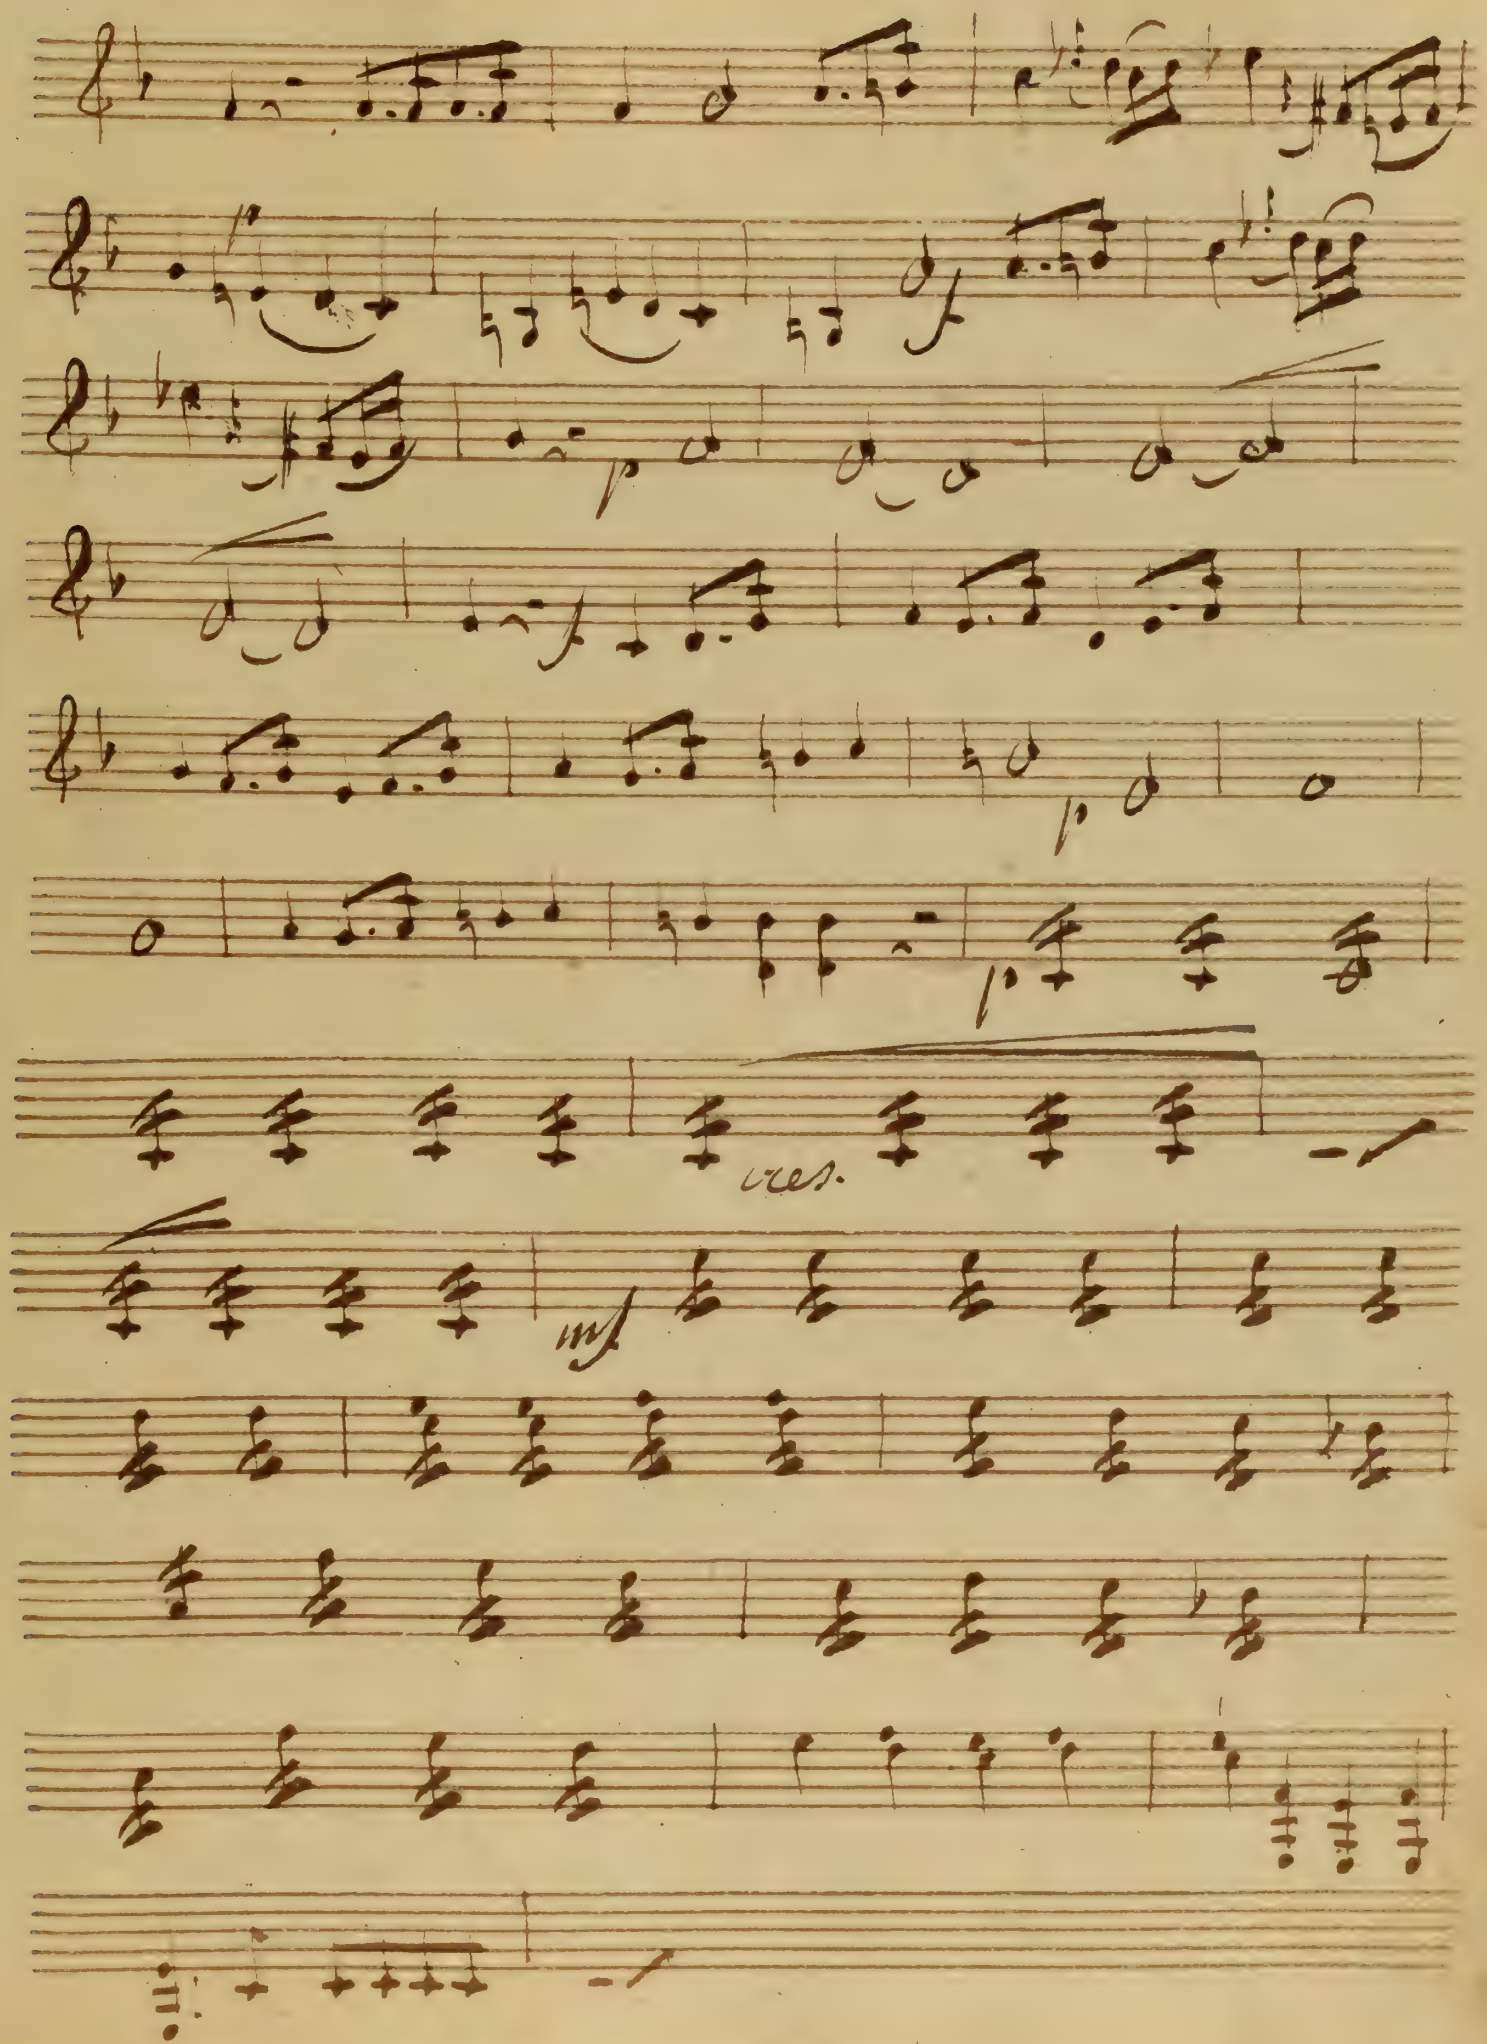 f
p
f
p
p
cres.
mf